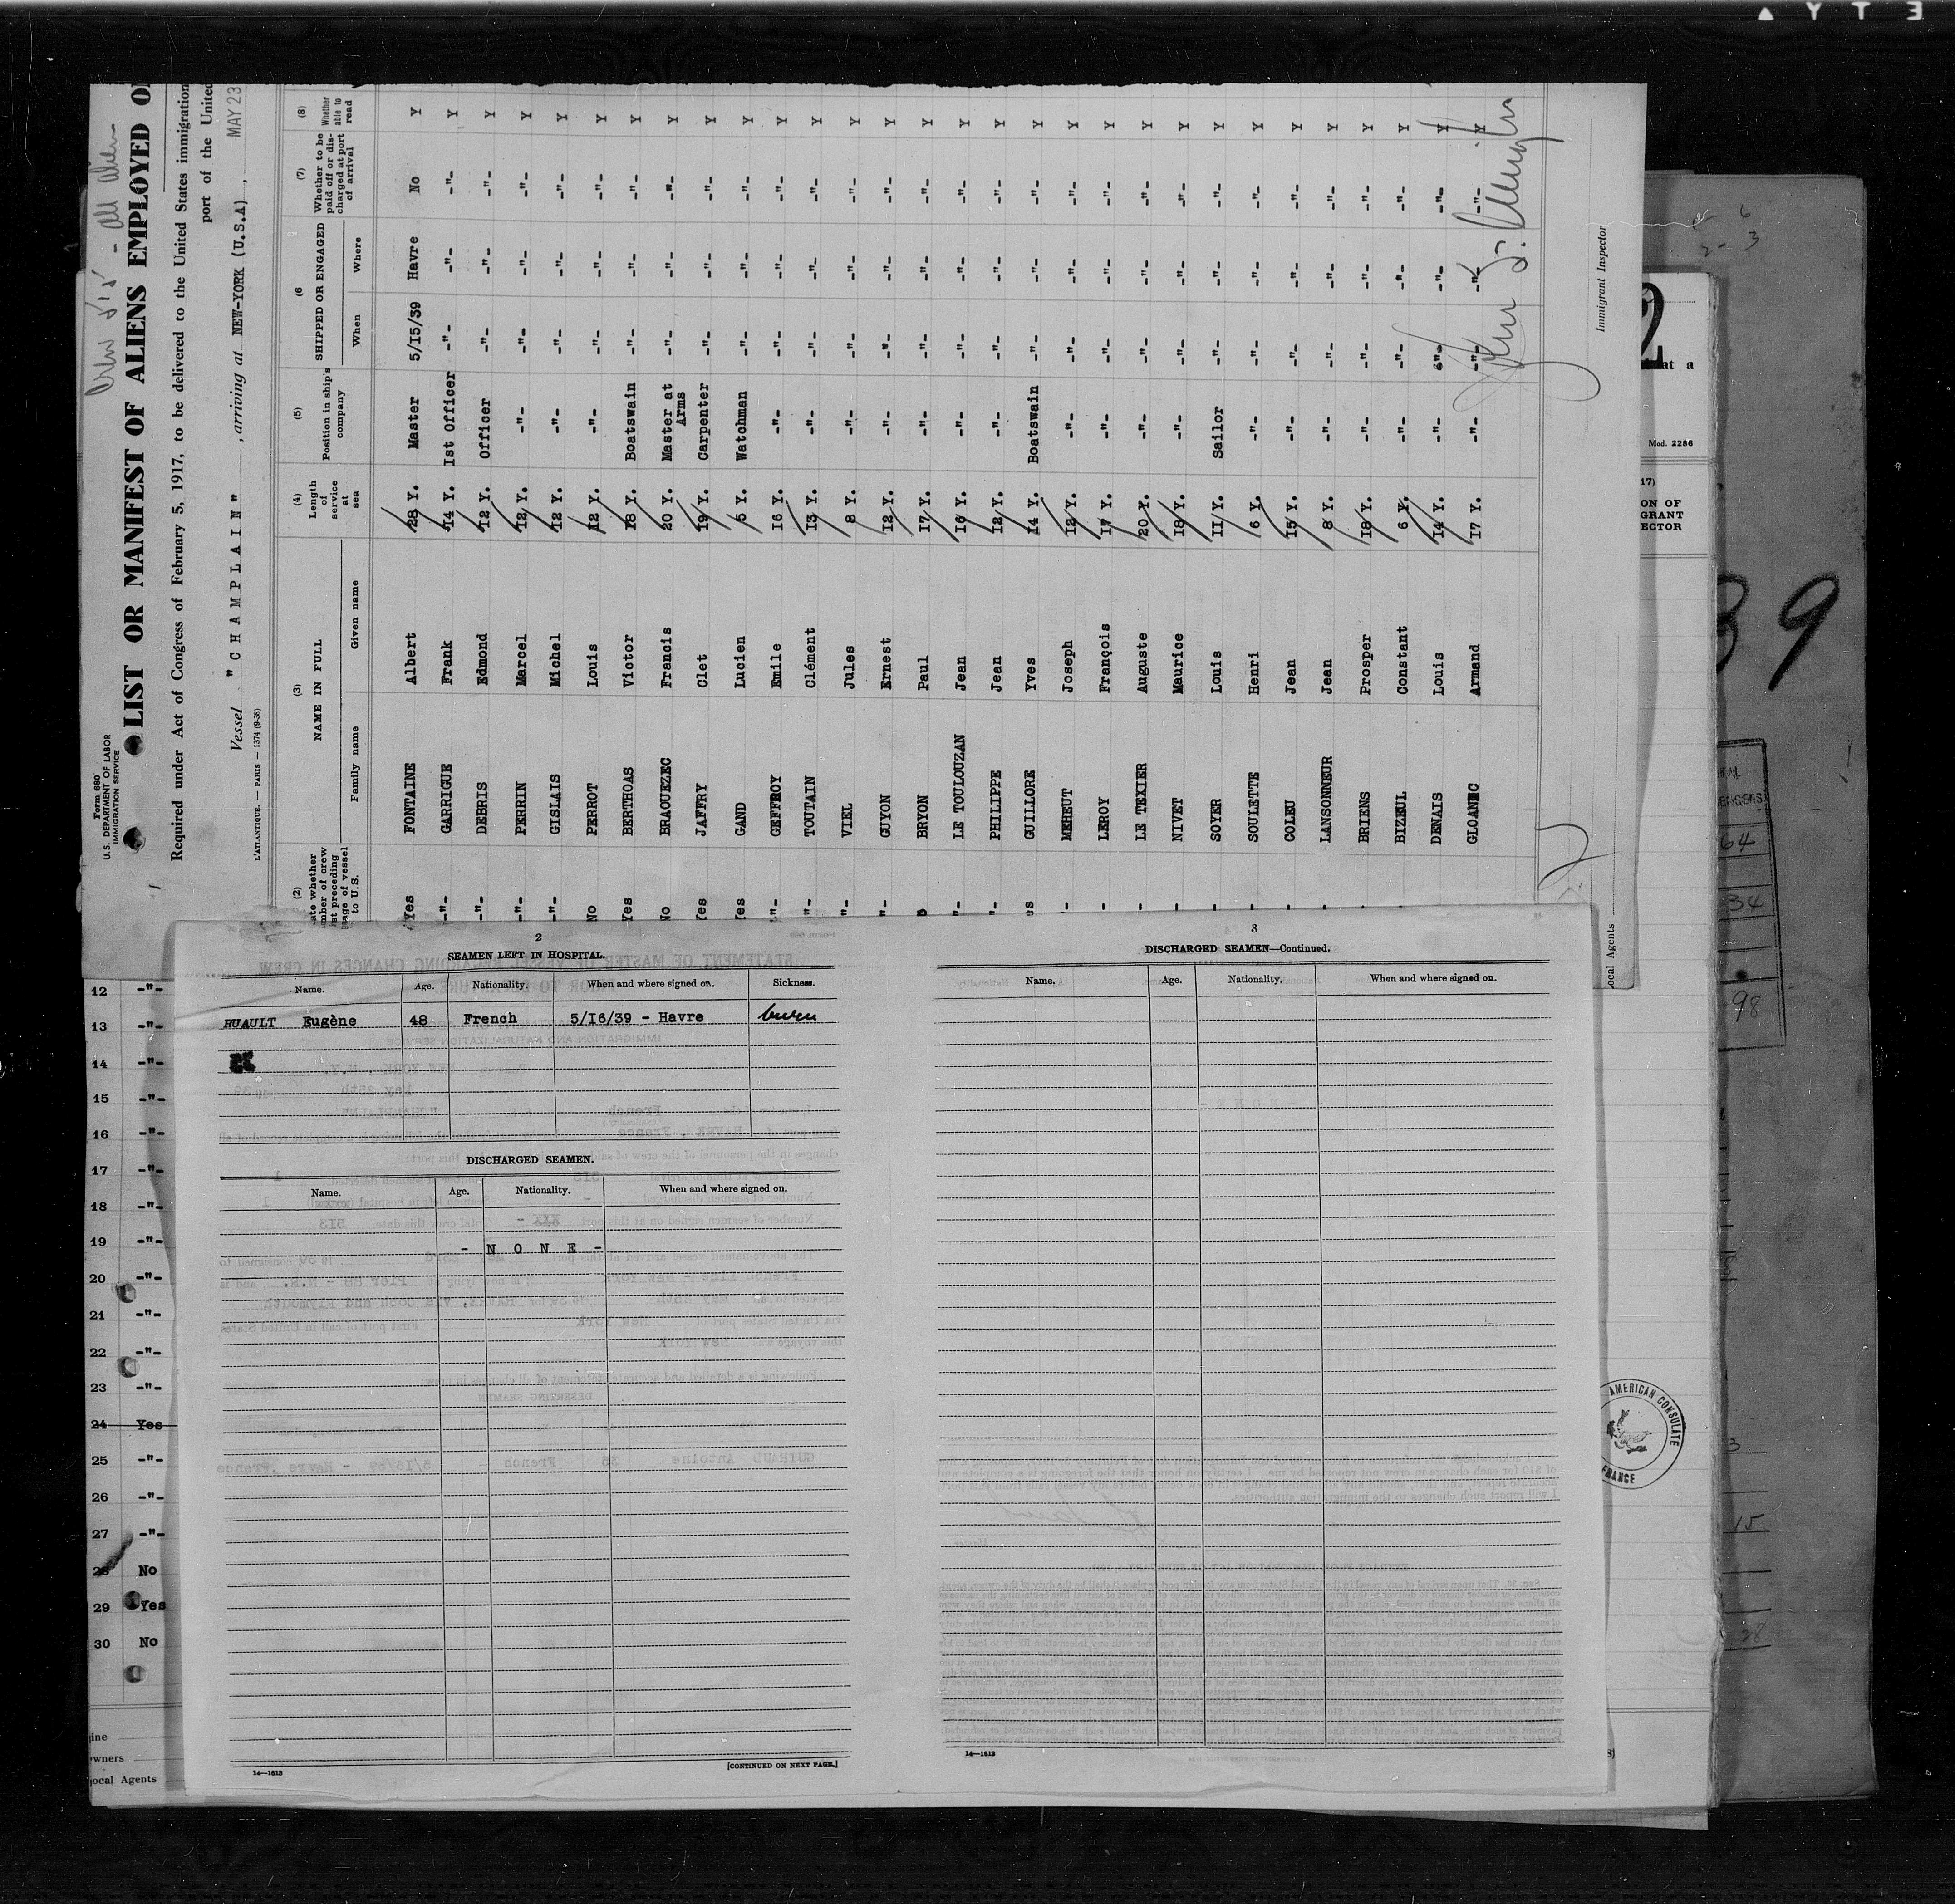 Form 680
U.S. DEPARTMENT OF LABOR
IMMIGRATION SERVICE
LIST OR MANIFEST OF ALIENS EMPLOYED O
Required under Act of Congress of February 5, 1917, to be delivered to the United States immigration
port of the United
Vessel "CHAMPLAIN", arriving at NEW-YORK (U.S.A), MAY 23
L'ATLANTIQUE. — PARIS — 1374 (9-38)
(2) (3) (4) (5) (6 (7) (8)
ate whether
mber of crew
st preceding
age of vessel
to U.S.
NAME IN FULL
Family name Given name
Length of service at sea
Position in ship's company
SHIPPED OR ENGAGED
When Where
Whether to be paid off or discharged at port of arrival
Whether able to read
Yes FONTAINE Albert 28 Y. Master 5/15/39 Havre No Y
-"- GARRIGUE Frank 14 Y. 1st Officer -"- -"- -"- Y
-"- DEBRIS Edmond 12 Y. Officer -"- -"- -"- Y
-"- PERRIN Marcel 12 Y. -"- -"- -"- -"- Y
-"- GISLAIS Michel 12 Y. -"- -"- -"- -"- Y
No PERROT Louis 12 Y. -"- -"- -"- -"- Y
Yes BERTHOAS Victor 18 Y. Boatswain -"- -"- -"- Y
No BRAOUEZEC Francis 20 Y. Master at Arms -"- -"- -"- Y
Yes JAFFRY Clet 19 Y. Carpenter -"- -"- -"- Y
Yes GAND Lucien 5 Y. Watchman -"- -"- -"- Y
"- GEFFROY Emile 16 Y. -"- -"- -"- -"- Y
"- TOUTAIN Clément 13 Y. -"- -"- -"- -"- Y
"- VIEL Jules 8 Y. -"- -"- -"- -"- Y
"- GUYON Ernest 12 Y. -"- -"- -"- -"- Y
BRYON Paul 17 Y. -"- -"- -"- -"- Y
"- LE TOULOUZAN Jean 16 Y. -"- -"- -"- -"- Y
"- PHILIPPE Jean 12 Y. -"- -"- -"- -"- Y
es GUILLORE Yves 14 Y. Boatswain -"- -"- -"- Y
- MEHEUT Joseph 12 Y. -"- -"- -"- -"- Y
- LEROY François 17 Y. -"- -"- -"- -"- Y
- LE TEXIER Auguste 20 Y. -"- -"- -"- -"- Y
- NIVET Maurice 18 Y. -"- -"- -"- -"- Y
- SOYER Louis 11 Y. Sailor -"- -"- -"- Y
- SOULETTE Henri 6 Y. -"- -"- -"- -"- Y
- COLEU Jean 15 Y. -"- -"- -"- -"- Y
- LANSONNEUR Jean 8 Y. -"- -"- -"- -"- Y
- BRIENS Prosper 18 Y. -"- -"- -"- -"- Y
- BIZEUL Constant 6 Y. -"- -"- -"- -"- Y
- DENAIS Louis 14 Y. -"- -"- -"- -"- Y
GLOANEC Armand 17 Y. -"- -"- -"- -"- Y
Immigrant Inspector
ocal Agents
at a
Mod. 2286
17)
ON OF
GRANT
ECTOR
39
64
34
98
2
SEAMEN LEFT IN HOSPITAL.
Name. Age. Nationality. When and where signed on. Sickness.
RUAULT Eugène 48 French 5/16/39 - Havre
DISCHARGED SEAMEN.
Name. Age. Nationality. When and where signed on.
- N O N E -
14—1613
[CONTINUED ON NEXT PAGE.]
3
DISCHARGED SEAMEN—Continued.
Name. Age. Nationality. When and where signed on.
14—1613
12 -"-
13 -"-
14 -"-
15 -"-
16 -"-
17 -"-
18 -"-
19 -"-
20 -"-
21 -"-
22 -"-
23 -"-
24 Yes
25 -"-
26 -"-
27 -"-
28 No
29 Yes
30 No
ine
wners
ocal Agents
AMERICAN CONSULATE
FRANCE
15